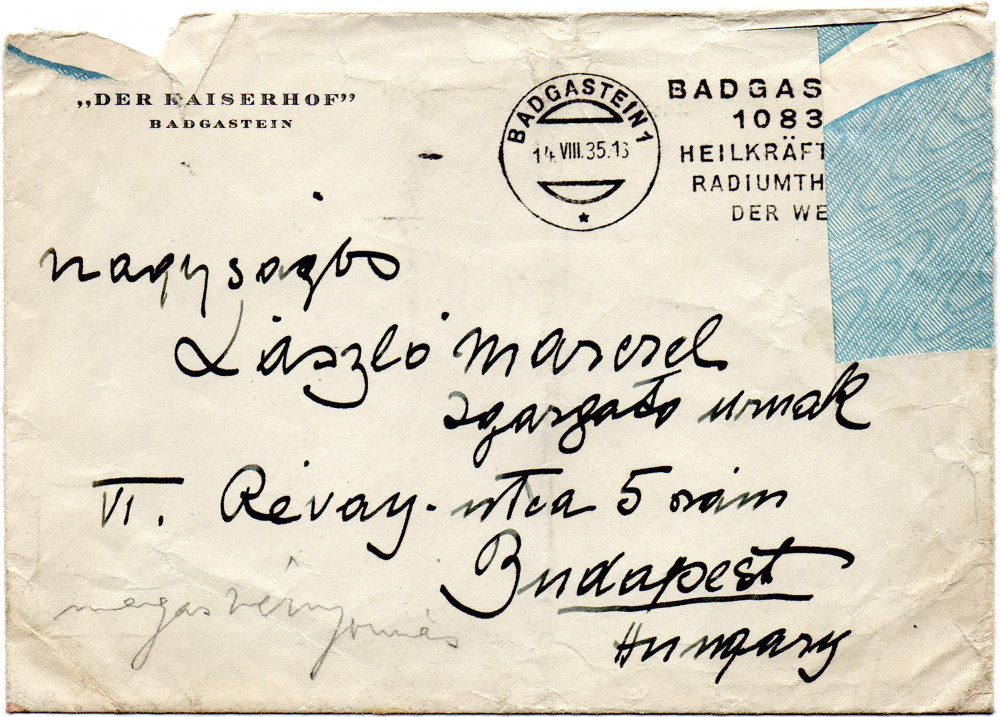 „DER KAISERHOF”
BADGASTEIN
BADGASTEIN 1
14.VIII.35.13
BADGAS
1083
HEILKRÄFT
RADIUMTH
DER WE
Nagyságos
László Marczel
igazgató urnak
VI. Révay-utca 5 szám
Budapest
Hungary
magas vérnyomás